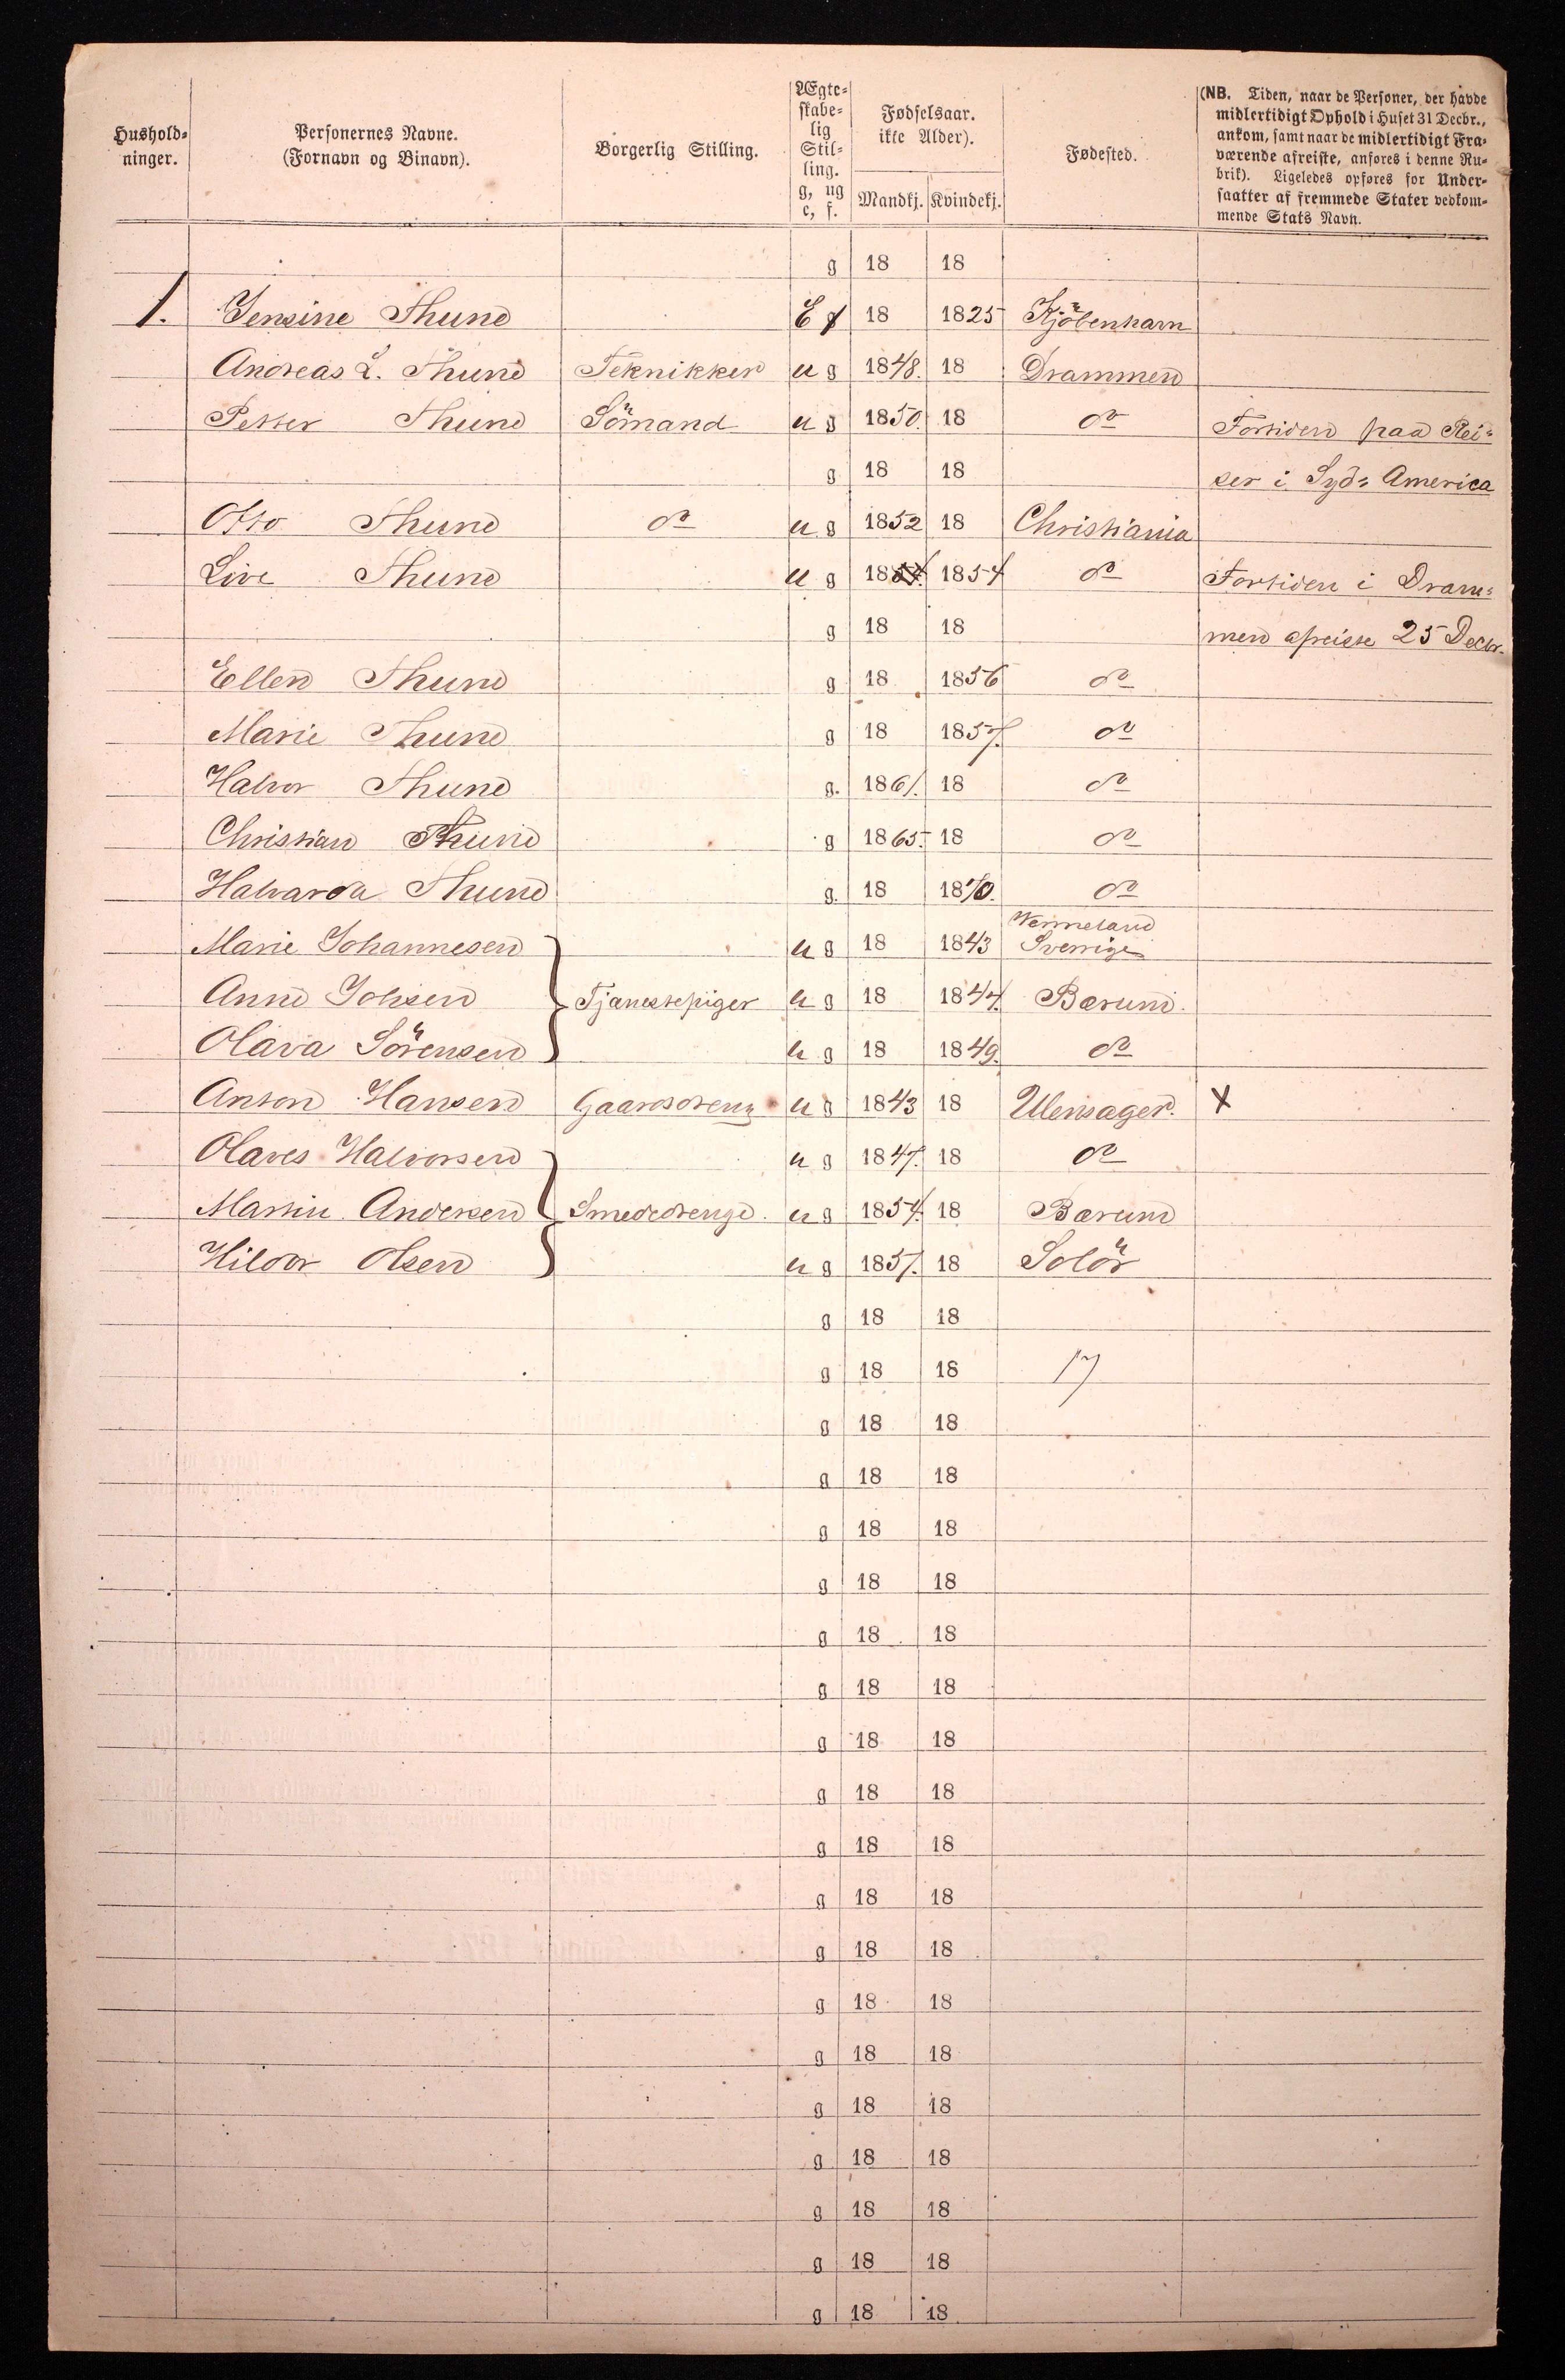 Hushold-
ninger.
Personernes Navne.
(Fornavn og Binavn).
Borgerlig Stilling.
Ægte-
skabe-
lig
Stil-
ling.
g, ug
e, f.
Fødselsaar.
ikke Alder).
Mandkj. Kvindekj.
Fødested.
(NB. Tiden, naar de Personer, der havde
midlertidigt Ophold i Huset 31 Decbr.,
ankom, samt naar de midlertidigt Fra-
værende afreiste, anføres i denne Ru-
brik). Ligeledes opføres for Under-
saatter af fremmede Stater vedkom-
mende Stats Navn.
g 18 18
1. Jensine Thune E 18 1825 Kjöbenhavn
Andreas L. Thune Teknikker u g 1848. 18 Drammen
Petter Thune Sömand u g 1850. 18 do Fortiden paa Rei-
g 18 18 ser i Syd- America
Otto Thune do u g 1852 18 Christiania
Live Thune u g 1854 1854 do Fortiden i Dram-
g 18 18 men afreiste 25 Decbr.
Ellen Thune g 18 1856 do
Marie Thune g 18 1857. do
Halvor Thune g. 1861. 18 do
Christian Thune g 1865. 18 do
Halvarda Thune g. 18 1870. do
Wermeland
Marie Johannesen u g 18 1843 Sverrige
Anne Johsen Tjenestepiger u g 18 1844. Bærum.
Olava Sörensen u g 18 1849. do
Anton Hansen Gaardsdreng u g 1843 18 Ulensager. X
Olaves Halvorsen u g 1847. 18 do
Martin Andersen Smededrenge. u g 1854. 18 Bærum
Hildor Olsen u g 1857. 18 Solör
g 18 18
g 18 18 17
g 18 18
g 18 18
g 18 18
g 18 18
g 18 18
g 18 18
g 18 18
g 18 18
g 18 18
g 18 18
g 18 18
g 18 18
g 18 18
g 18 18
g 18 18
g 18 18
g 18 18
g 18 18